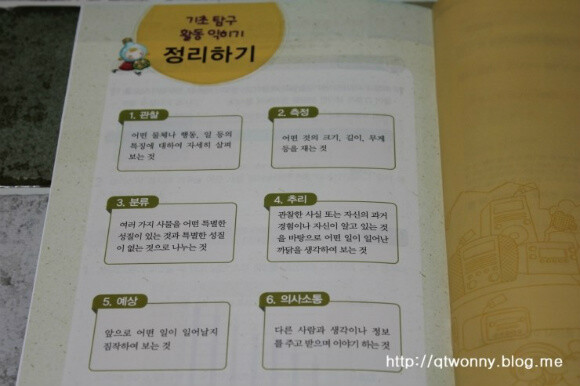 기초 탐구
활동 익히기
정리하기
1. 관찰
어떤 물체나 행동, 일 등의
특징에 대하여 자세히 살펴
보는 것
2. 측정
어떤 것의 크기, 길이, 무게
등을 재는 것
3. 분류
여러 가지 사물을 어떤 특별한
성질이 있는 것과 특별한 성질
이 없는 것으로 나누는 것
4. 추리
관찰한 사실 또는 자신의 과거
경험이나 자신이 알고 있는 것
을 바탕으로 어떤 일이 일어난
까닭을 생각하여 보는 것
5. 예상
앞으로 어떤 일이 일어날지
짐작하여 보는 것
6. 의사소통
다른 사람과 생각이나 정보
를 주고 받으며 이야기 하는 것
http://qtwonny.blog.me